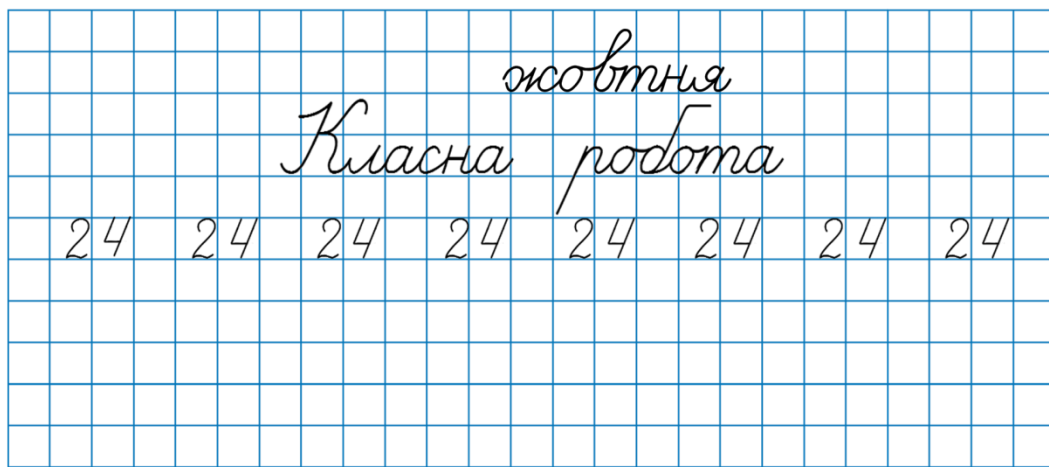 жовтня
Класна робота
24 24 24 24 24 24 24 24